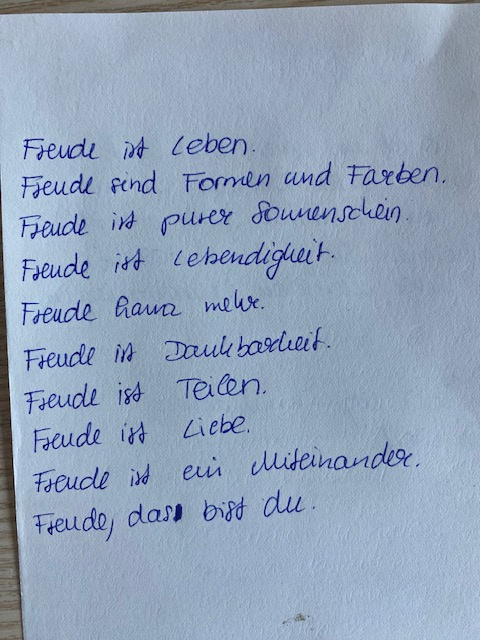 Freude ist Leben.
Freude sind Formen und Farben.
Freude ist purer Sonnenschein.
Freude ist Lebendigkeit.
Freude kann mehr.
Freude ist Dankbarkeit.
Freude ist Teilen.
Freude ist Liebe.
Freude ist ein Miteinander.
Freude, das bist du.